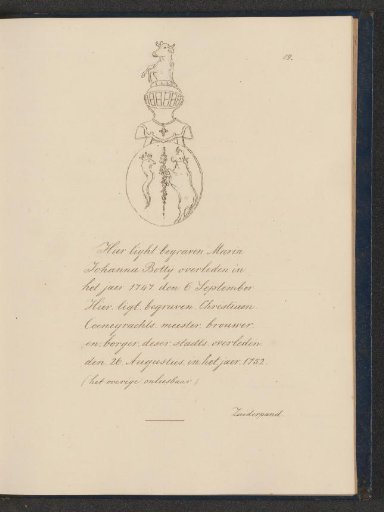 19.
Hier light begraven Maria
Johanna Botty overleden in
het jaer 1747 den 6 September
Hier ligt begraven Christiaan
Coenegrachts meester brouwer
en borger deser stadts overleden
den 26 Augustus in het jaer 1752
(het overige onleesbaar)
Zuiderpand